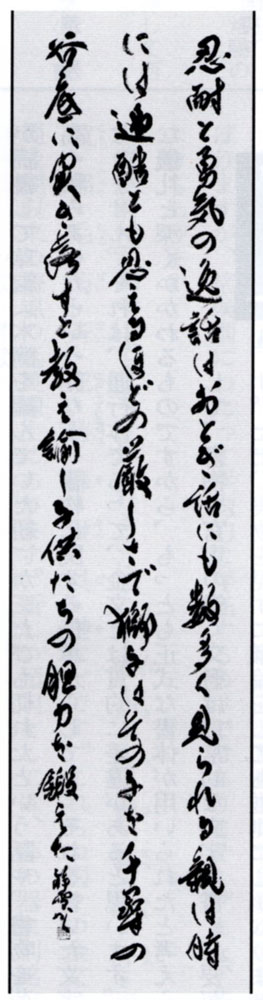 忍耐と勇気の逸話はおとぎ話にも数多く見られる親は時
には過酷とも思える程の厳しさで獅子は其の子を千尋の
谷底に突き落すと教え諭し子供たちの胆力を鍛えた